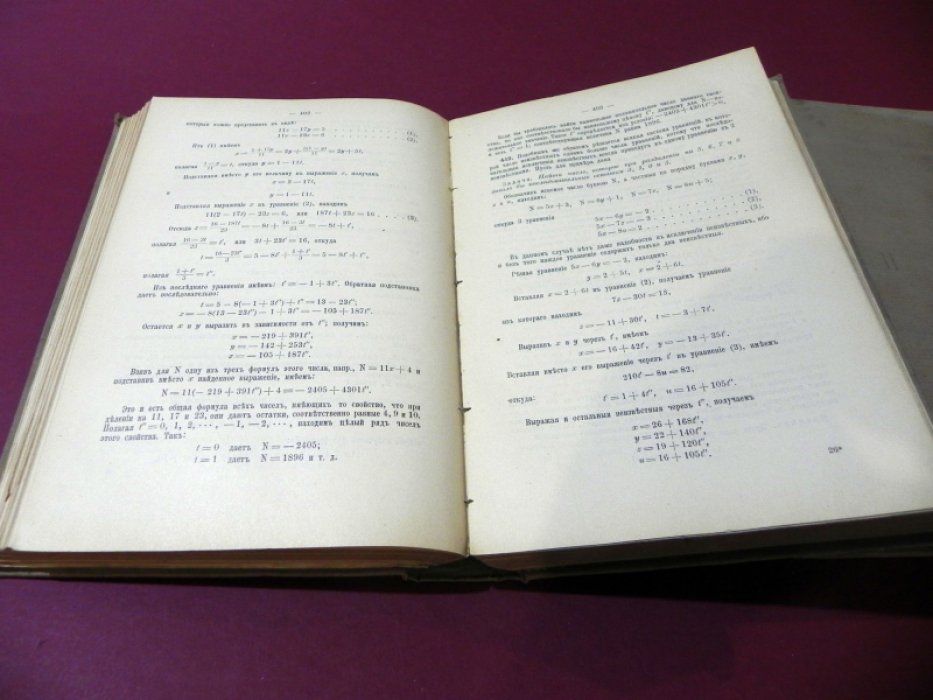 — 402 —
которыя можно представить въ видѣ:
11x − 17y = 5 . . . . . . . . . . . . (1),
11x − 23z = 6 . . . . . . . . . . . . (2).
Изъ (1) имѣемъ
полагая = t, откуда y = 1 − 11t.
Подставляя вмѣсто y его величину въ выраженіе x, получаемъ
x = 2 − 17t,
и
y = 1 − 11t.
Подставляя выраженіе x въ уравненіе (2), находимъ
11(2 − 17t) − 23z = 6, или 187t + 23z = 16 . . . . (3)
Отсюда z = (16 − 187t)/23 = − 8t + (16 − 3t)/23 = − 8t + t′,
полагая (16 − 3t)/23 = t′, или 3t + 23t′ = 16, откуда
t = (16 − 23t′)/3 = 5 − 8t′ + (1 + t′)/3 = 5 − 8t′ + t″,
полагая (1 + t′)/3 = t″.
Изъ послѣдняго уравненія имѣемъ: t′ = − 1 + 3t″. Обратная подстановка
даетъ послѣдовательно:
t = 5 − 8(− 1 + 3t″) + t″ = 13 − 23t″;
z = − 8(13 − 23t″) − 1 + 3t″ = − 105 + 187t″.
Остается x и y выразить въ зависимости отъ t″; получимъ:
x = − 219 + 391t″,
y = − 142 + 253t″,
z = − 105 + 187t″.
Взявъ для N одну изъ трехъ формулъ этого числа, напр., N = 11x + 4 и
подставивъ вмѣсто x найденное выраженіе, имѣемъ:
N = 11(− 219 + 391t″) + 4 = − 2405 + 4301t″.
Это и есть общая формула всѣхъ чиселъ, имѣющихъ то свойство, что при
дѣленіи на 11, 17 и 23, они даютъ остатки, соотвѣтственно равные 4, 9 и 10.
Полагая t″ = 0, 1, 2, ···, −1, − 2, ···, находимъ цѣлый рядъ чиселъ
этого свойства. Такъ:
t = 0 даетъ N = − 2405;
t = 1 даетъ N = 1896 и т. д.
— 403 —
Если бы требовалось найти наименьшее положительное число даннаго
N = 5x + 3, N = 6y + 1, N = 7z, N = 8u + 5;
откуда 3 уравненія
5x − 6y = − 2 . . . . . . . . . . . . (1),
5x − 7z = − 3 . . . . . . . . . . . . (2),
5x − 8u = 2 . . . . . . . . . . . . (3).
Въ данномъ случаѣ нѣтъ даже надобности въ исключеніи неизвѣстныхъ, ибо
и безъ того каждое уравненіе содержитъ только два неизвѣстныя.
Рѣшая уравненіе 5x − 6y = − 2, находимъ:
y = 2 + 5t, x = 2 + 6t.
Вставляя x = 2 + 6t въ уравненіе (2), получаемъ уравненіе
7z − 30t = 15,
изъ котораго находимъ
z = − 11 + 30t′, t = − 3 + 7t′.
Выразивъ x и y черезъ t′, имѣемъ
x = − 16 + 42t′, y = − 13 + 35t′.
Вставляя вмѣсто x его выраженіе черезъ t′ въ уравненіе (3), имѣемъ
210t′ − 8u = 82,
откуда: t′ = 1 + 4t″, u = 16 + 105t″.
Выражая и остальныя неизвѣстныя черезъ t″, получаемъ
x = 26 + 168t″,
y = 22 + 140t″,
z = 19 + 120t″,
u = 16 + 105t″.
26*